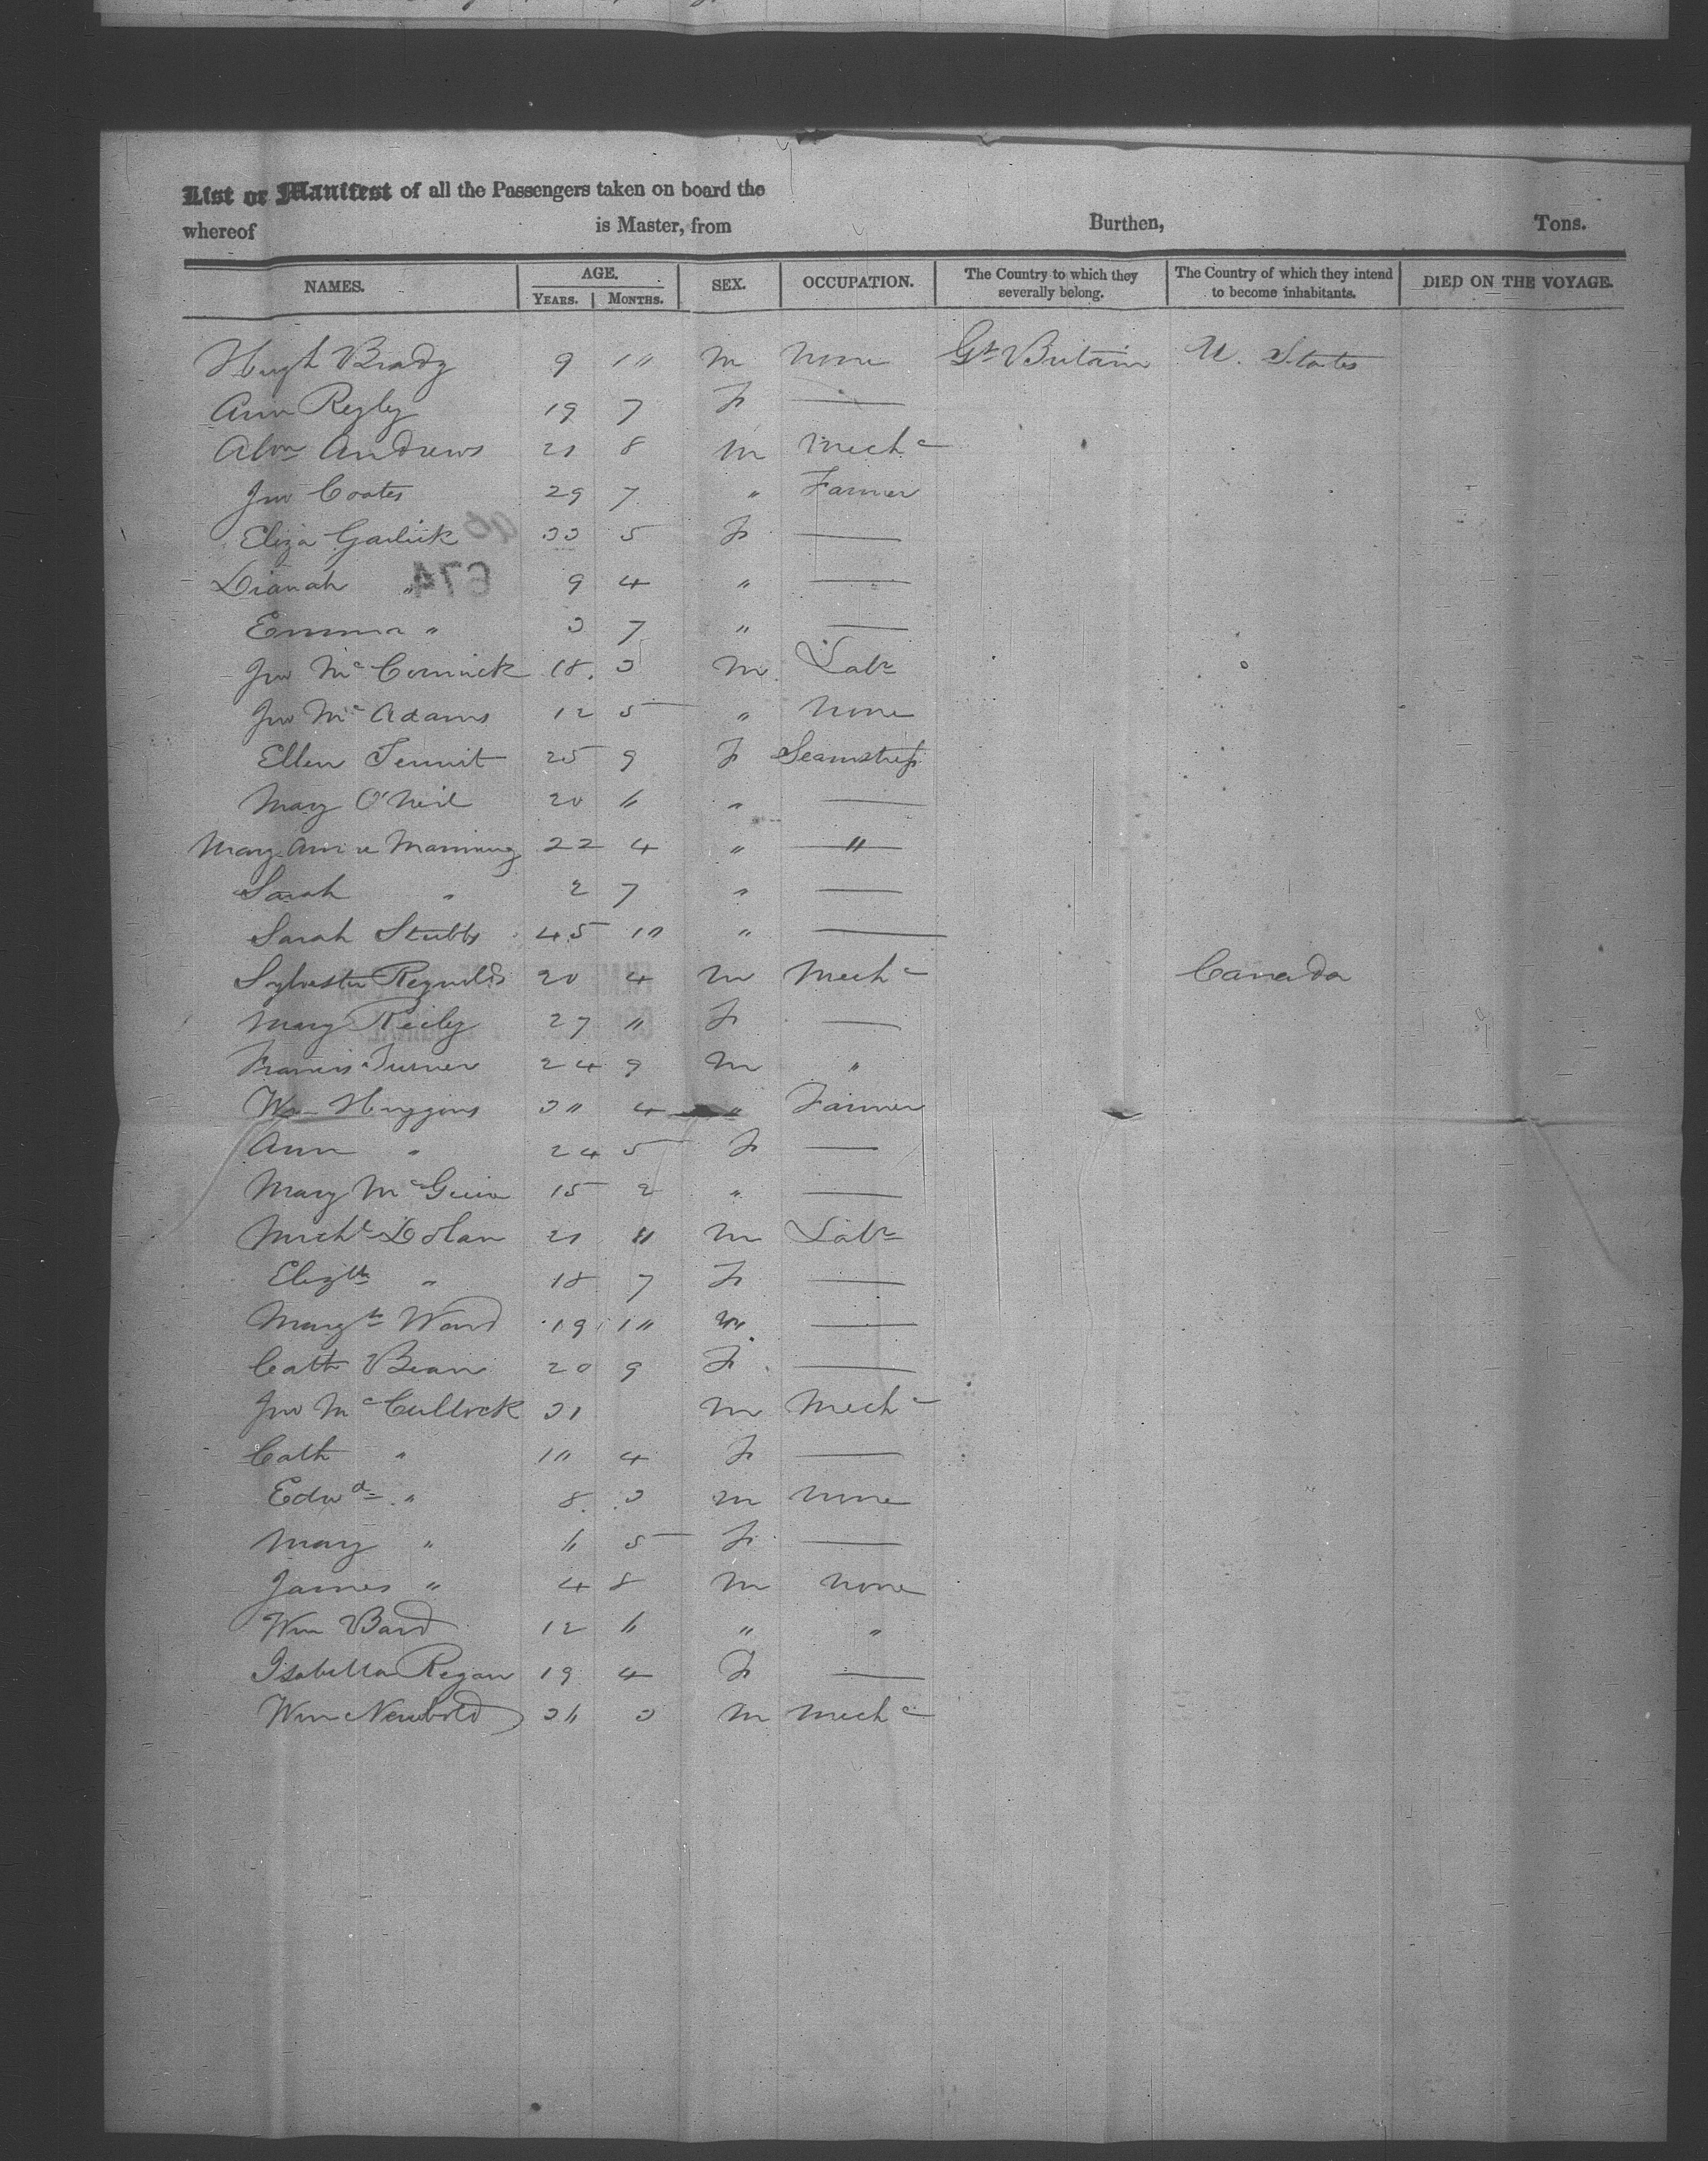 List or Manifest of all the Passengers taken on board the
whereof is Master, from Burthen, Tons.
NAMES. AGE. YEARS. MONTHS. SEX. OCCUPATION. The Country to which they severally belong. The Country of which they intend to become inhabitants. DIED ON THE VOYAGE.
Hugh Brady 9 10 M None Gt Britain U. States
Ann Regby 19 7 F —
Alxr Andrews 21 8 M Mechc
Jno Coates 29 7 " Farmer
Eliza Garlick 33 5 F —
Dianah " 9 4 " —
Emma " 3 7 " —
Jno McCormick 18 3 M Labr
Jno McAdams 12 5 " None
Ellen Tennit 25 9 F Seamstress
Mary O'Neil 20 6 " —
Mary Ann Manning 22 4 " "
Sarah " 2 7 " —
Sarah Stubbs 45 10 " —
Sylvester Reynolds 20 4 M Mechc Canada
Mary Reily 27 " F —
Francis Turner 24 9 M "
Wm Huggins 30 4 " Farmer
Ann " 24 5 F —
Mary McGuire 15 2 " —
Michl Dolan 21 " M Labr
Elizth " 18 7 F —
Margt Ward 19 10 —
Cath Bean 20 9 F —
Jno McCullock 31 M Mechc
Cath " 10 4 F —
Edwd " 8 3 M None
Mary " 6 5 F —
James " 4 8 M None
Wm Bard 12 6 " "
Isabella Regan 19 4 F —
Wm Newbold 36 3 M Mechc